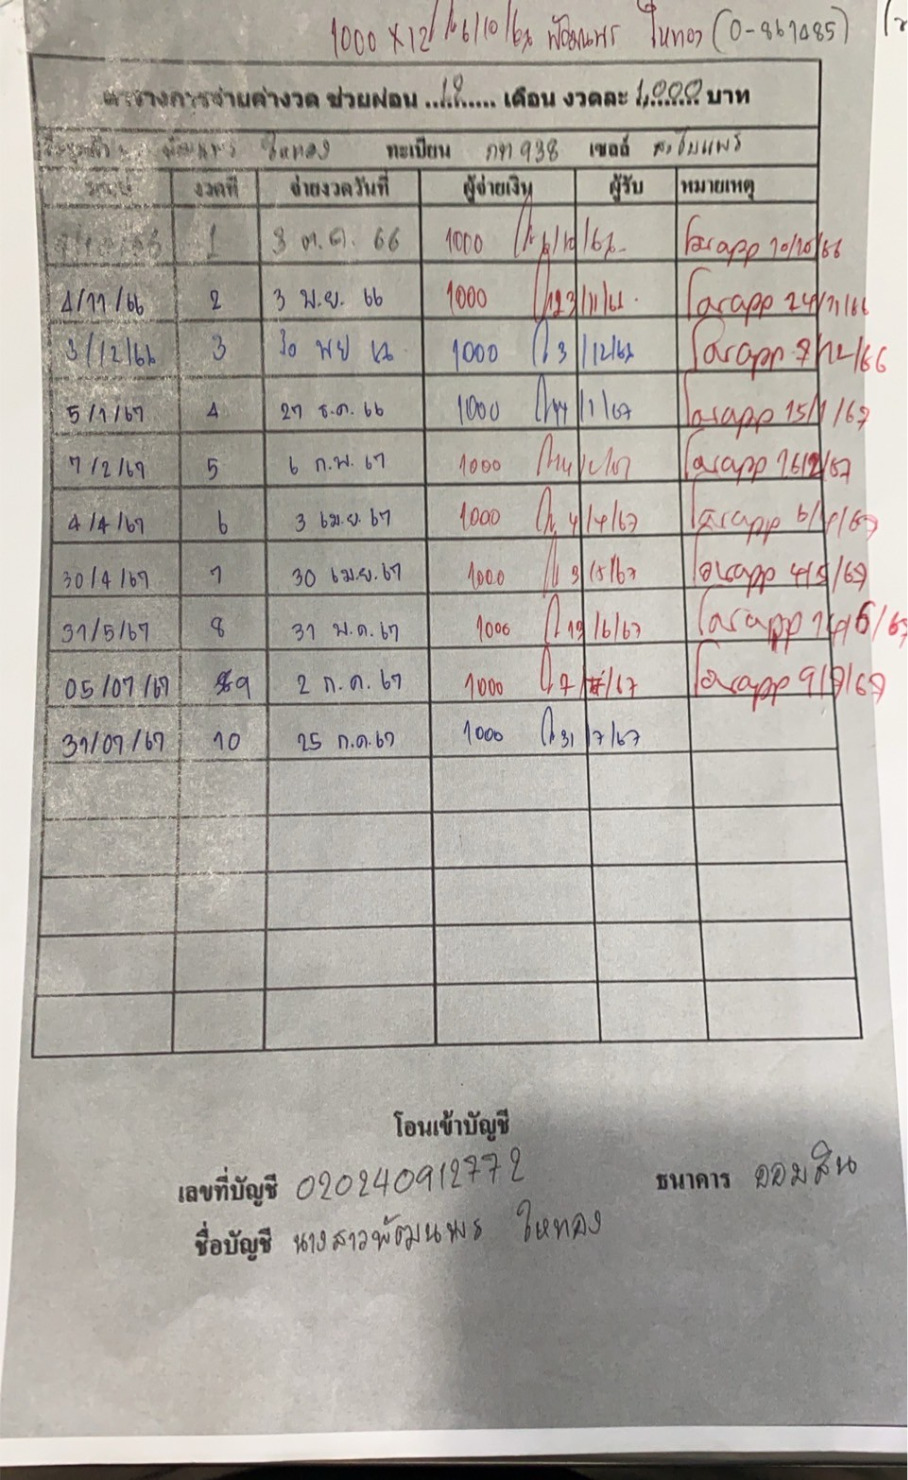 1000 x 12 6/10/66 พัฒนพร ใหทอง (0-867485)
ตารางการจ่ายค่างวด ช่วยผ่อน ...12...... เดือน งวดละ 1,000 บาท
พัฒนพร ใหทอง ทะเบียน กท 938 เซลล์
งวดที่ จ่ายงวดวันที่ ผู้จ่ายเงิน ผู้รับ หมายเหตุ
1 3 ต.ค. 66 1000 6/10/66 โอนapp 10/10/66
4/11/66 2 3 พ.ย. 66 1000 23/11/66 โอนapp 24/11/66
3/12/66 3 30 พย 66 1000 3/12/66 โอนapp 7/12/66
5/1/67 4 27 ธ.ค. 66 1000 14/1/67 โอนapp 15/1/67
7/2/67 5 6 ก.พ. 67 1000 14/2/67 โอนapp 16/2/67
4/4/67 6 3 เม.ย. 67 1000 4/4/67 โอนapp 6/4/67
30/4/67 7 30 เม.ย. 67 1000 3/5/67 โอนapp 4/5/67
31/5/67 8 31 พ.ค. 67 1000 13/6/67 โอนapp 14/6/67
05/07/67 9 2 ก.ค. 67 1000 7/7/67 โอนapp 9/7/67
31/07/67 10 25 ก.ค. 67 1000 31/7/67
โอนเข้าบัญชี
เลขที่บัญชี 020240912772 ธนาคาร ออมสิน
ชื่อบัญชี นางสาวพัฒนพร ใหทอง